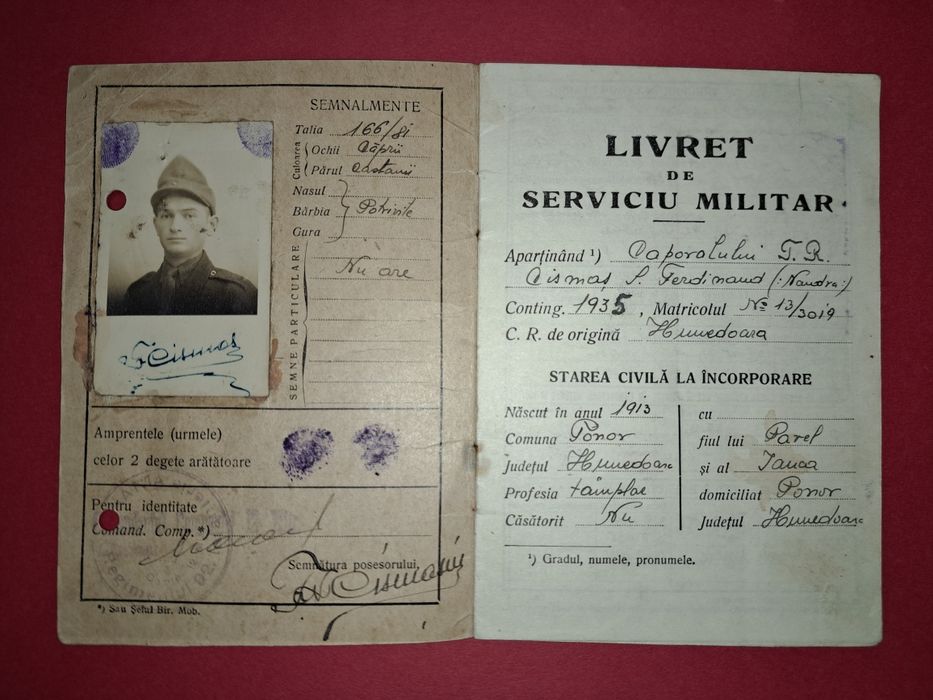 SEMNALMENTE
Talia 166/81
Culoarea
Ochii Căprii
Părul Castanii
Nasul
Bărbia Potrivite
Gura
SEMNE PARTICULARE
Nu are
F. Cismaș
Amprentele (urmele)
celor 2 degete arătătoare
Pentru identitate
Comand. Comp. *)
Semnătura posesorului,
*) Sau Șeful Bir. Mob.
LIVRET
DE
SERVICIU MILITAR
Aparținând ¹) Caporalului T. R.
Cismaș S. Ferdinand (:Nandra:)
Conting. 1935, Matricolul No 13/3019
C. R. de origină Hunedoara
STAREA CIVILĂ LA ÎNCORPORARE
Născut în anul 1913
Comuna Ponor
Județul Hunedoara
Profesia tâmplar
Căsătorit Nu
cu
fiul lui Pavel
și al Ianca
domiciliat Ponor
Județul Hunedoara
¹) Gradul, numele, pronumele.